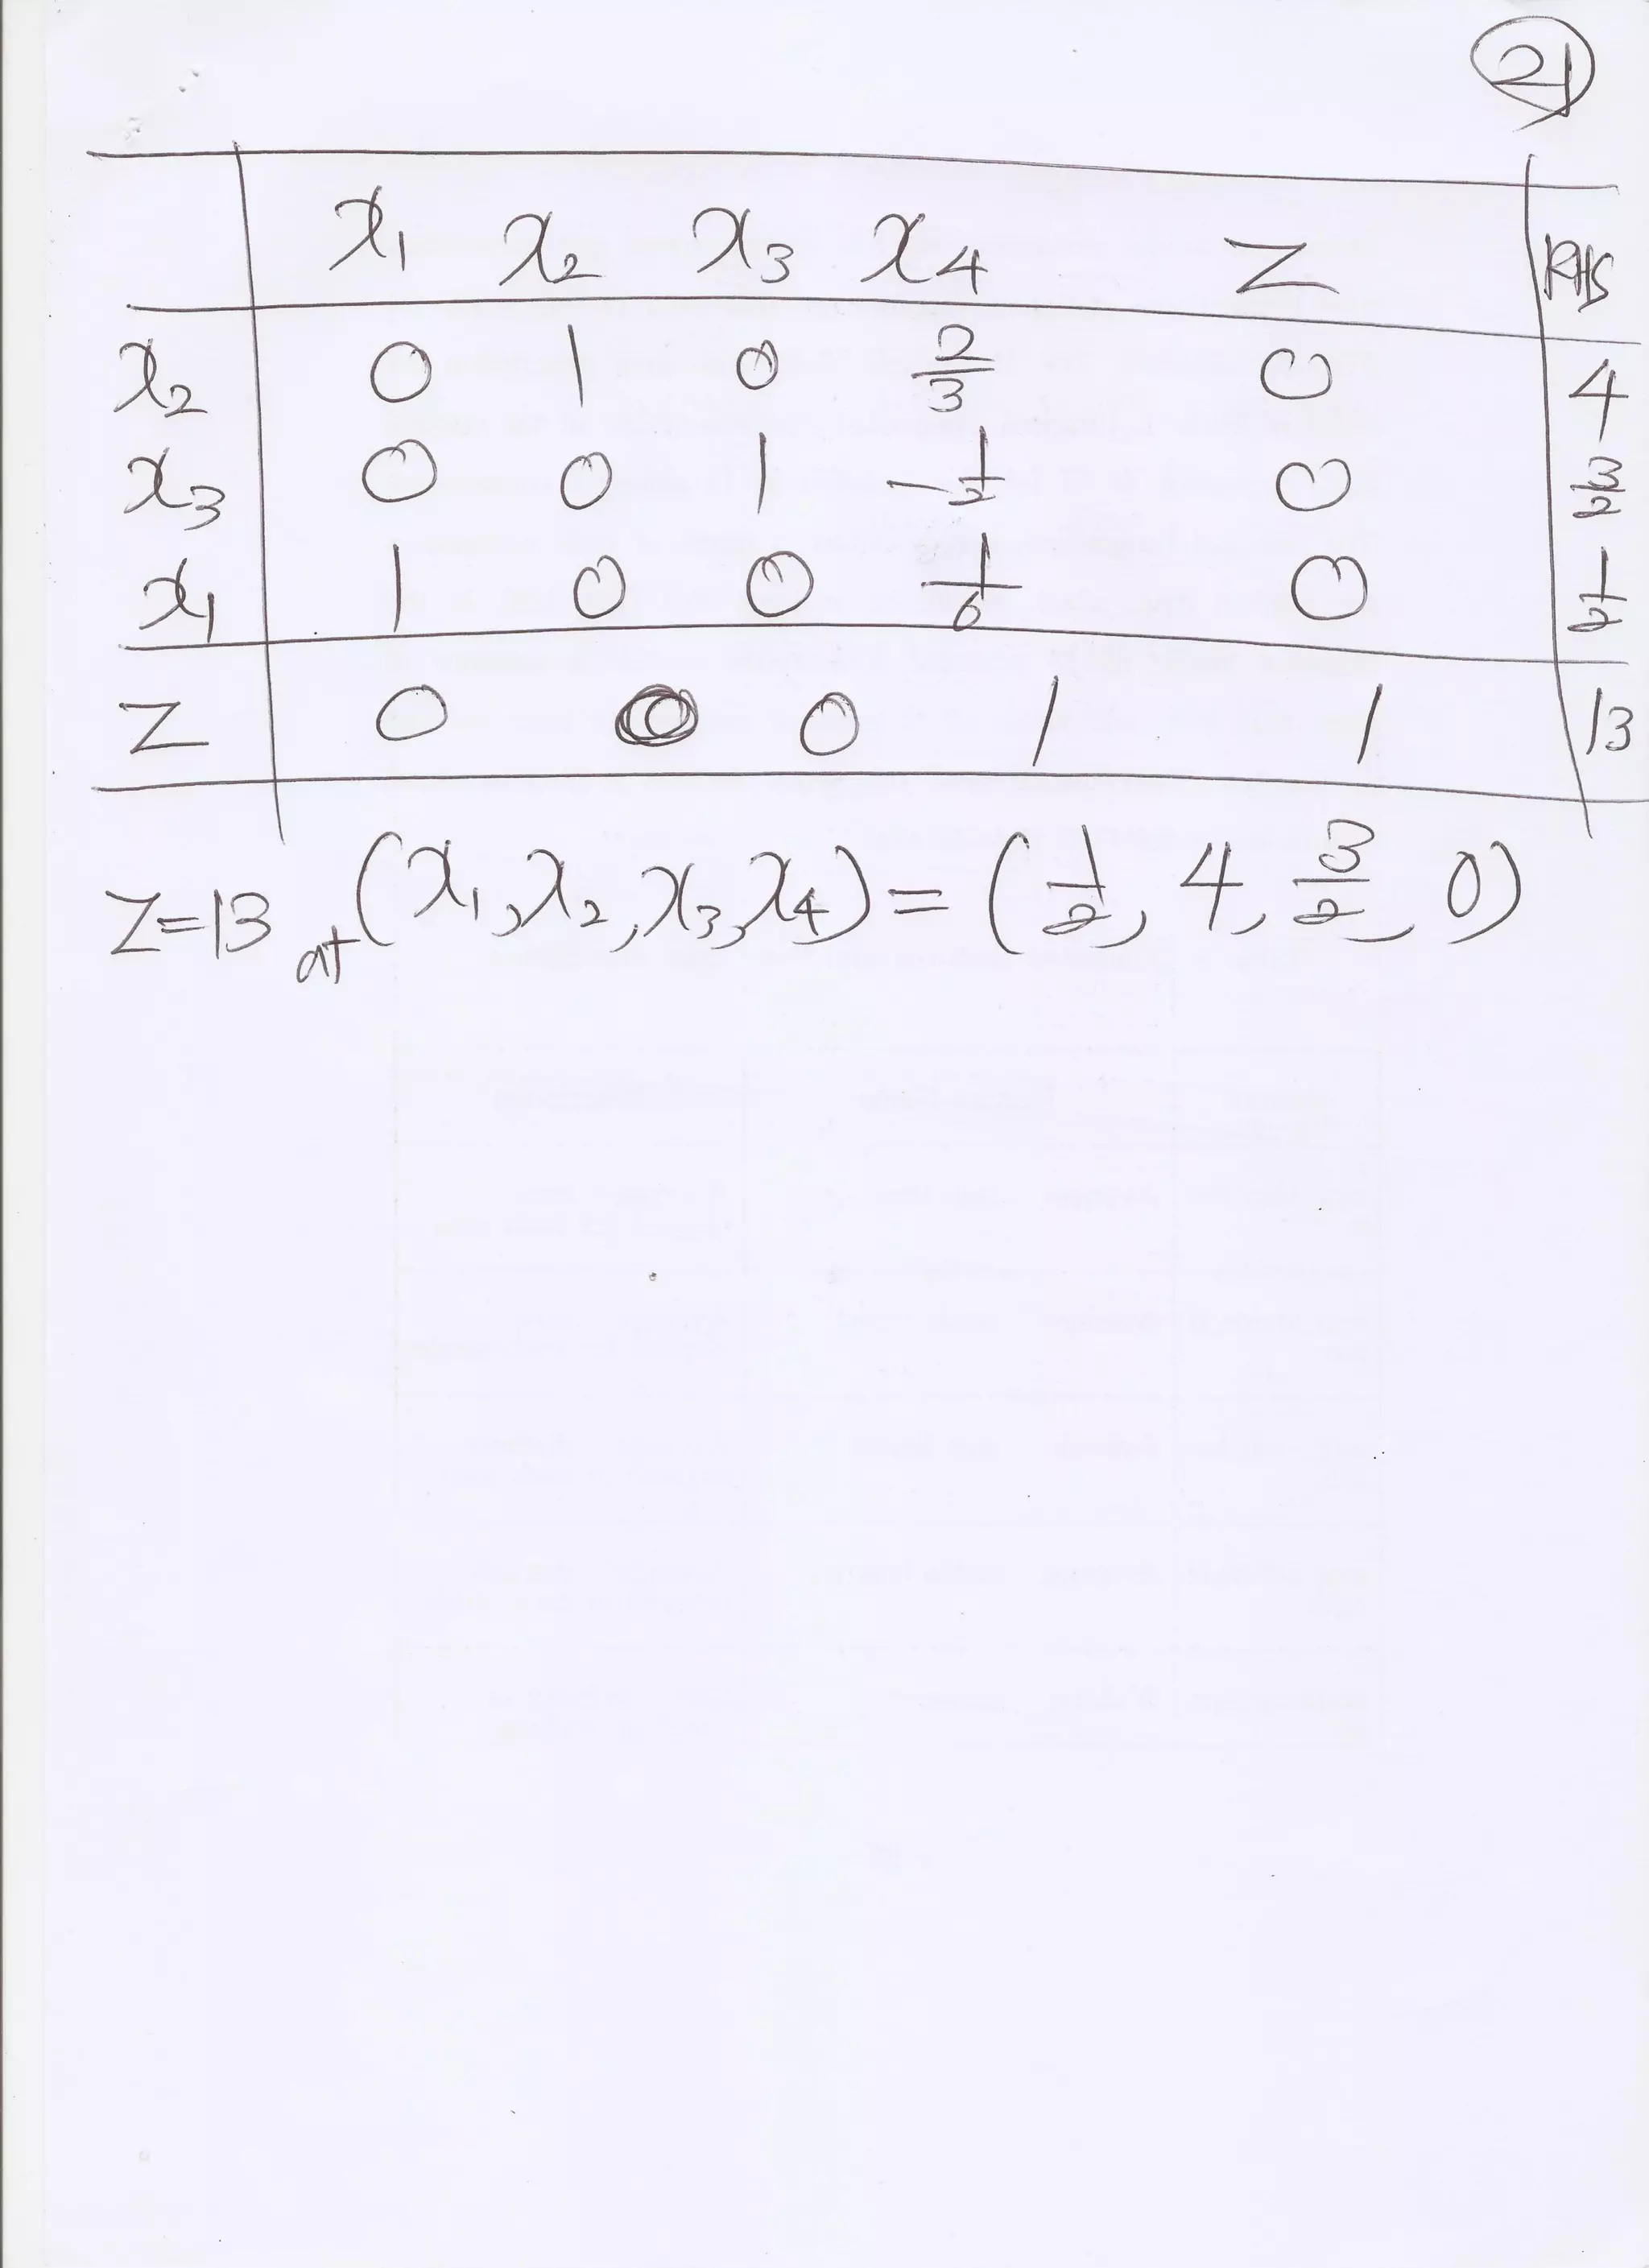 21
x₁ x₂ x₃ x₄ Z RHS
x₂ 0 1 0 2/3 0 4
x₃ 0 0 1 -1/2 0 3/2
x₁ 1 0 0 1/6 0 1/2
Z 0 0 0 1 1 13
Z=13 at (x₁, x₂, x₃, x₄) = (1/2, 4, 3/2, 0)